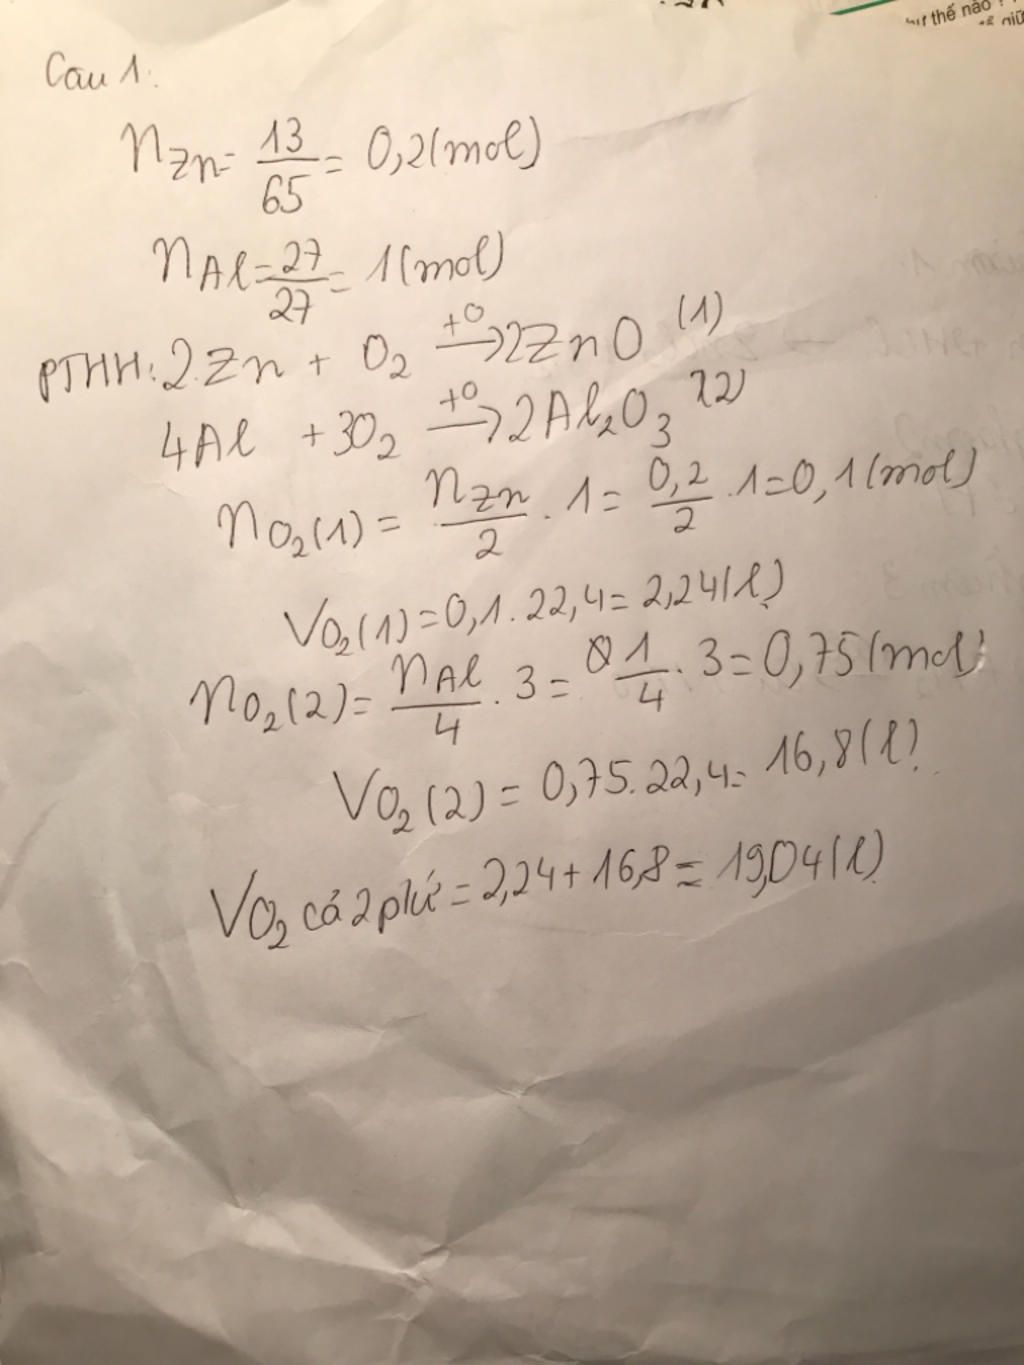 ư thế nào ?
giữ
Câu 1:
nZn = 13/65 = 0,2 (mol)
nAl = 27/27 = 1 (mol)
PTHH: 2Zn + O₂ →(t⁰) 2ZnO (1)
4Al + 3O₂ →(t⁰) 2Al₂O₃ (2)
nO₂(1) = nZn/2 . 1 = 0,2/2 . 1 = 0,1 (mol)
VO₂(1) = 0,1 . 22,4 = 2,24 (l)
nO₂(2) = nAl/4 . 3 = 1/4 . 3 = 0,75 (mol)
VO₂(2) = 0,75 . 22,4 = 16,8 (l)
VO₂ cả 2 pứ = 2,24 + 16,8 = 19,04 (l)